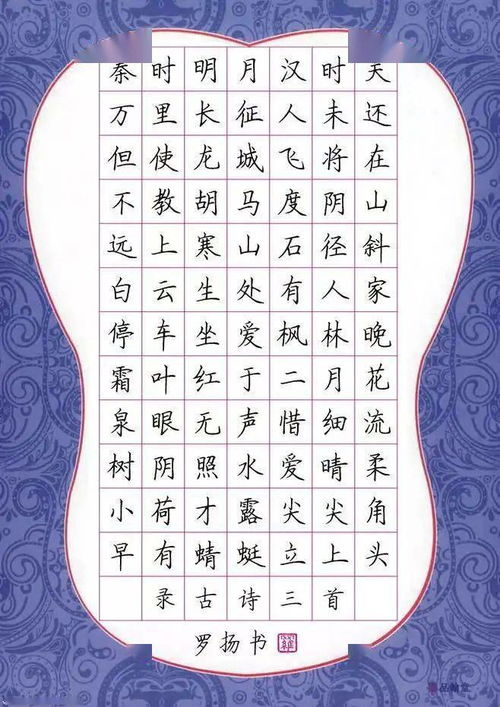 秦时明月汉时关
万里长征人未还
但使龙城飞将在
不教胡马度阴山
远上寒山石径斜
白云生处有人家
停车坐爱枫林晚
霜叶红于二月花
泉眼无声惜细流
树阴照水爱晴柔
小荷才露尖尖角
早有蜻蜓立上头
录古诗三首
罗扬书
品翰堂